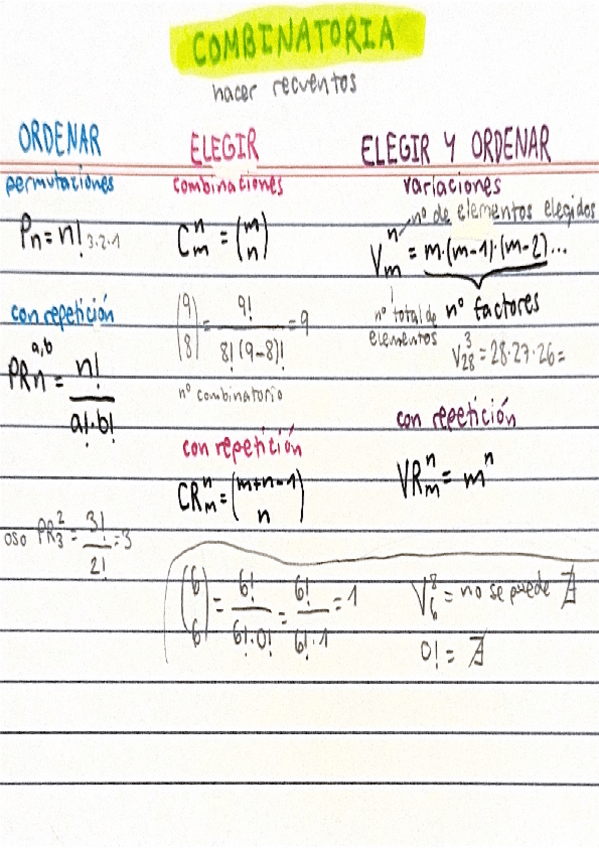 COMBINATORIA
hacer recuentos
ORDENAR
permutaciones
Pn = n! 3·2·1
con repetición
PRn^a,b = n!/(a!·b!)
oso PR₃² = 3!/2! = 3
ELEGIR
combinaciones
Cₘⁿ = (m n)
(9 8) = 9!/(8!(9-8)!) = 9
nº combinatorio
con repetición
CRₘⁿ = (m+n-1 n)
(6 6) = 6!/(6!·0!) = 6!/(6!·1) = 1
ELEGIR Y ORDENAR
variaciones
nº de elementos elegidos
Vₘⁿ = m·(m-1)·(m-2)...
nº total de elementos
nº factores
V₂₈³ = 28·27·26=
con repetición
VRₘⁿ = mⁿ
V₆⁸ = no se puede ∄
0! = ∄